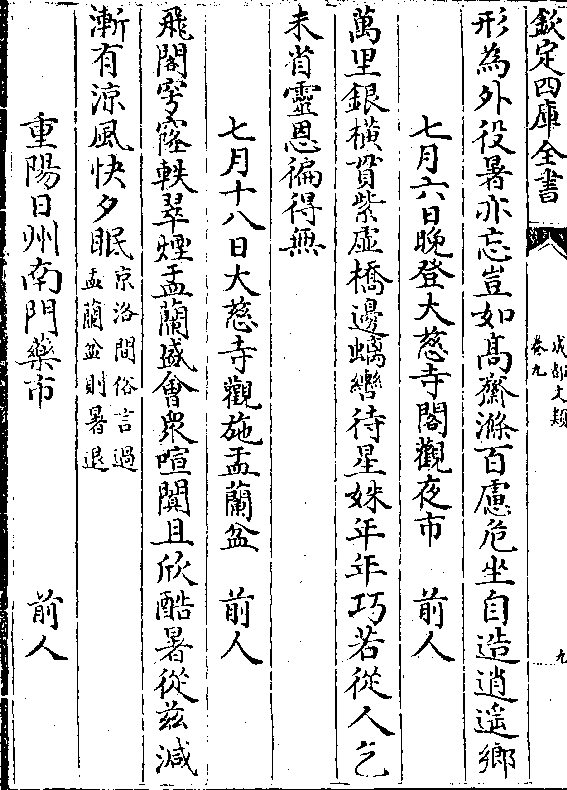 欽定四庫全書
成都文類
卷九
九
形為外役暑亦忘豈如髙齋滌百慮危坐自造逍遥鄉
七月六日晚登大慈寺閣觀夜市 前人
萬里銀橫貫紫虛橋邊螭轡待星姝年年巧若從人乞
未省靈恩徧得無
七月十八日大慈寺觀施盂蘭盆 前人
飛閣穹窿軼翠煙盂蘭盛會衆喧闐且欣酷暑從兹減
漸有涼風快夕眠京洛間俗言過
盂蘭盆則暑退
重陽日州南門藥市 前人